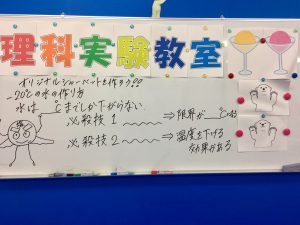 理科実験教室
オリジナルシャーベットを作ろう!!
-20℃の水の作り方
水は ℃までしか下がらない
必殺技1 ⇒限界が ℃
必殺技2 ⇒温度を下げる
効果がある